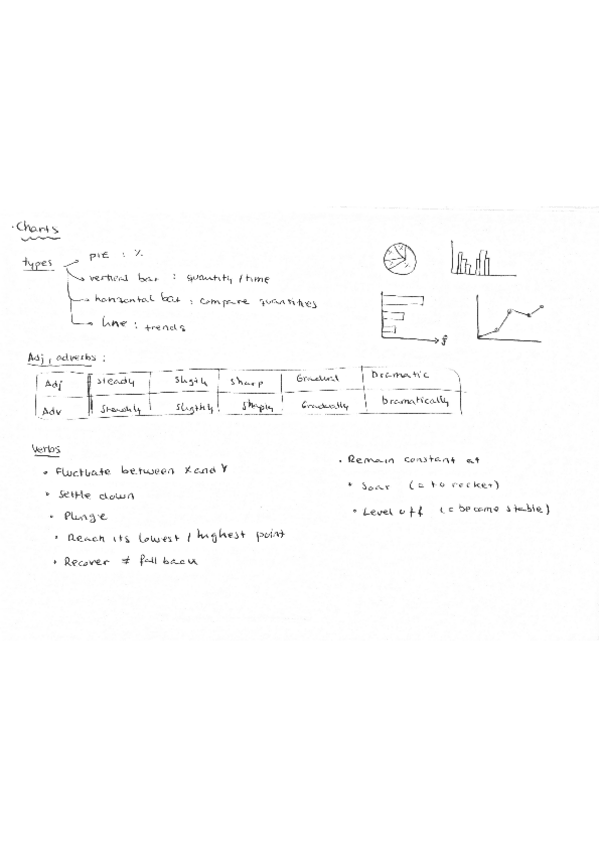 · Charts
types
PIE : %
vertical bar : quantity / time
horizontal bar : compare quantities
line : trends
Adj, adverbs :
Adj steady Sligtly sharp Gradual Dramatic
Adv Steadily Sligthly Sharply Gradually Dramatically
Verbs
• Fluctuate between X and Y
• Settle down
• Plunge
• Reach its lowest / highest point
• Recover ≠ fall back
• Remain constant at
• Soar (= to rocket)
• Level off (= become stable)